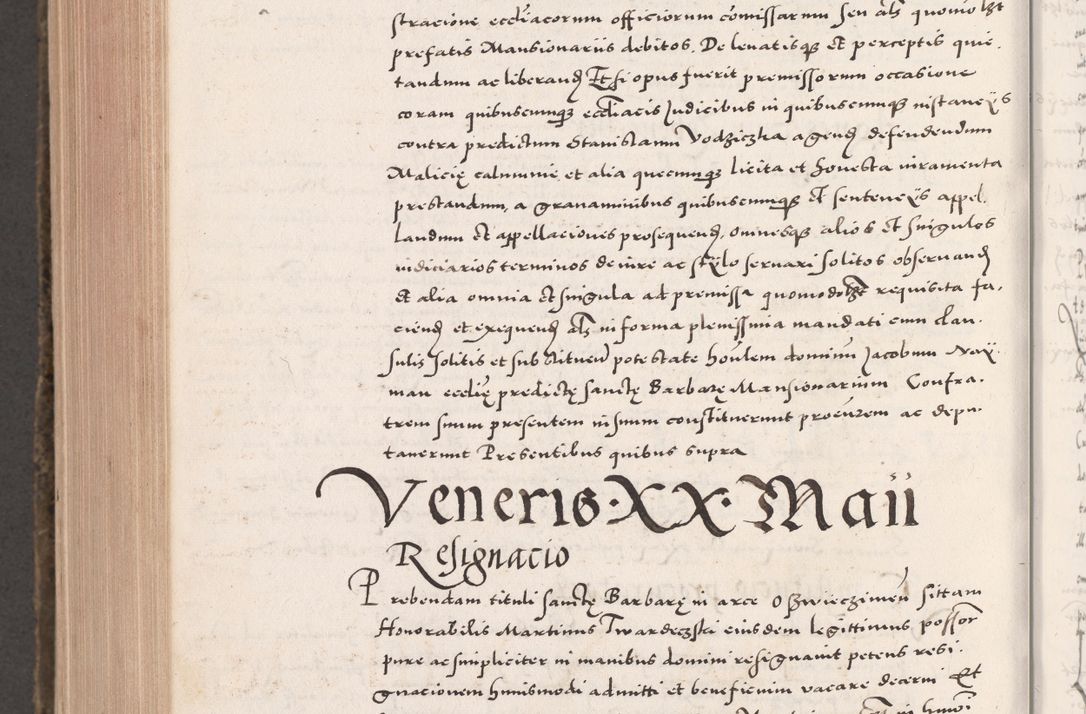 stracione ecclиacorum officiorum comissarum seu als quomolibet
prefatis Mansionariis debitos. De levatisque et perceptis quie.
tandum ac liberand Et si opus fuerit premissorum occasione
coram quibuscumque eccliacis Judicibus in quibuscumque instanciis
contra predictum Stanislaum Vodziczka agend defendendum
Malicię calumnie et alia quecumque licita et honesta iuramenta
prestandum, a gravaminibus quibuscumque et sentenciis appel.
landum et appellaciones prosequend, omnesque alios et singulos
iudiciarios terminos de iure ac stylo servari solitos observand
et alia omnia et singula ad premissa quomodolibet requisita fa.
ciend et exequend als in forma plenissima mandati cum clau.
sulis solitis et substituendi potestate honlem dominum Jacobum
man ecclię predictę sanctę Barbarę Mansionarium Confra.
trem suum presentem in suum constituerunt procurem ac depu.
taverunt Presentibus quibus supra
Veneris · XX · Maii
Resignacio
Prebendam tituli sanctę Barbarę in arce Oszwieczimen sittam
Honorabilis Martinus Twardeczski eiusdem legittimus possor
pure ac simpliciter in manibus domini resignavit petens resi.
gnacionem huiusmodi admitti et beneficium vacare decerni Et